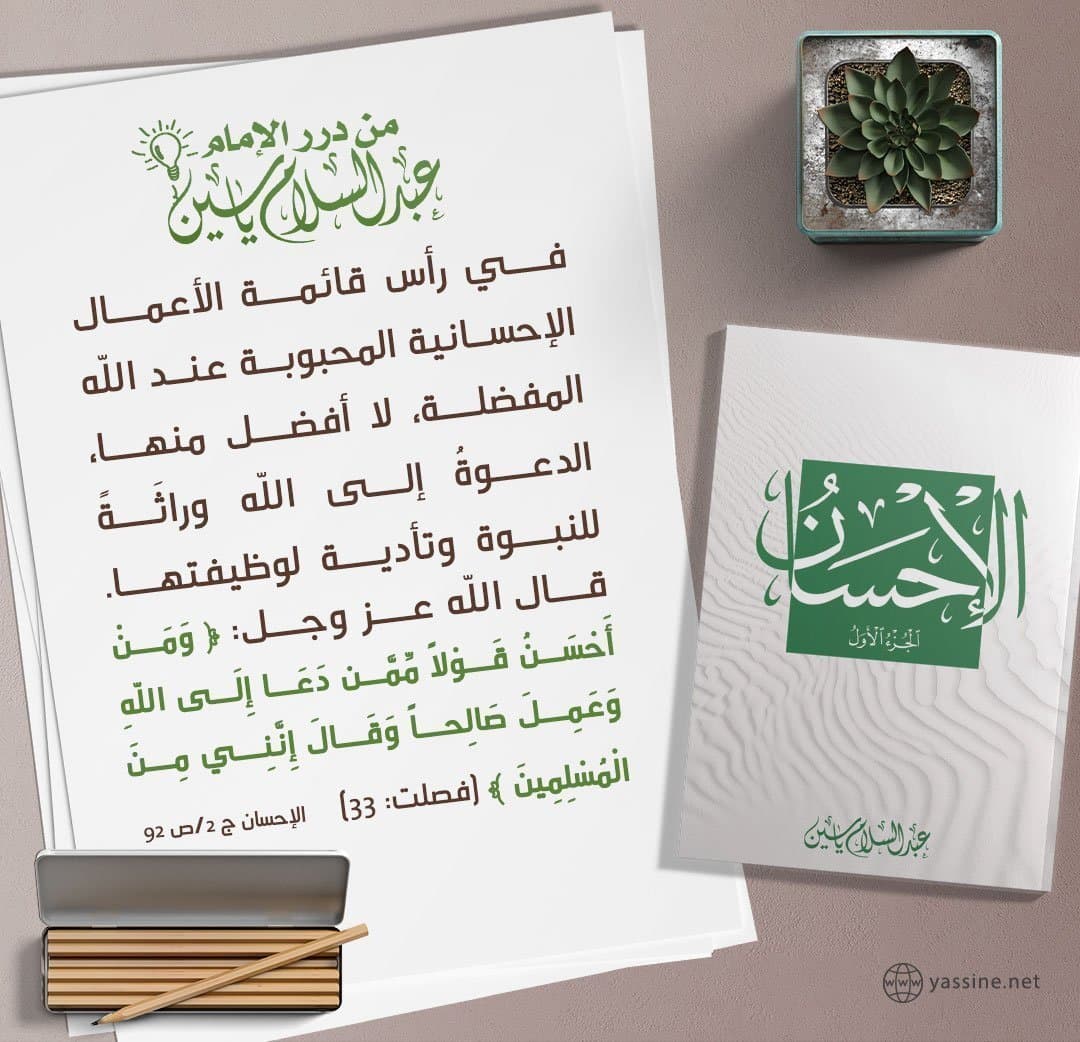 من درر الإمام
عبد السلام ياسين
في رأس قائمة الأعمال
الإحسانية المحبوبة عند الله
المفضلة، لا أفضل منها،
الدعوةُ إلى الله وراثَةً
للنبوة وتأدية لوظيفتها.
قال الله عز وجل: ﴿ وَمَنْ
أَحْسَنُ قَوْلاً مِّمَّن دَعَا إِلَى اللَّهِ
وَعَمِلَ صَالِحاً وَقَالَ إِنَّنِي مِنَ
الْمُسْلِمِينَ ﴾ (فصلت: 33)
الإحسان ج 2/ص 92
الإحسانُ
الجُزءُ الأَوَلُ
عبد السلام ياسين
www yassine.net